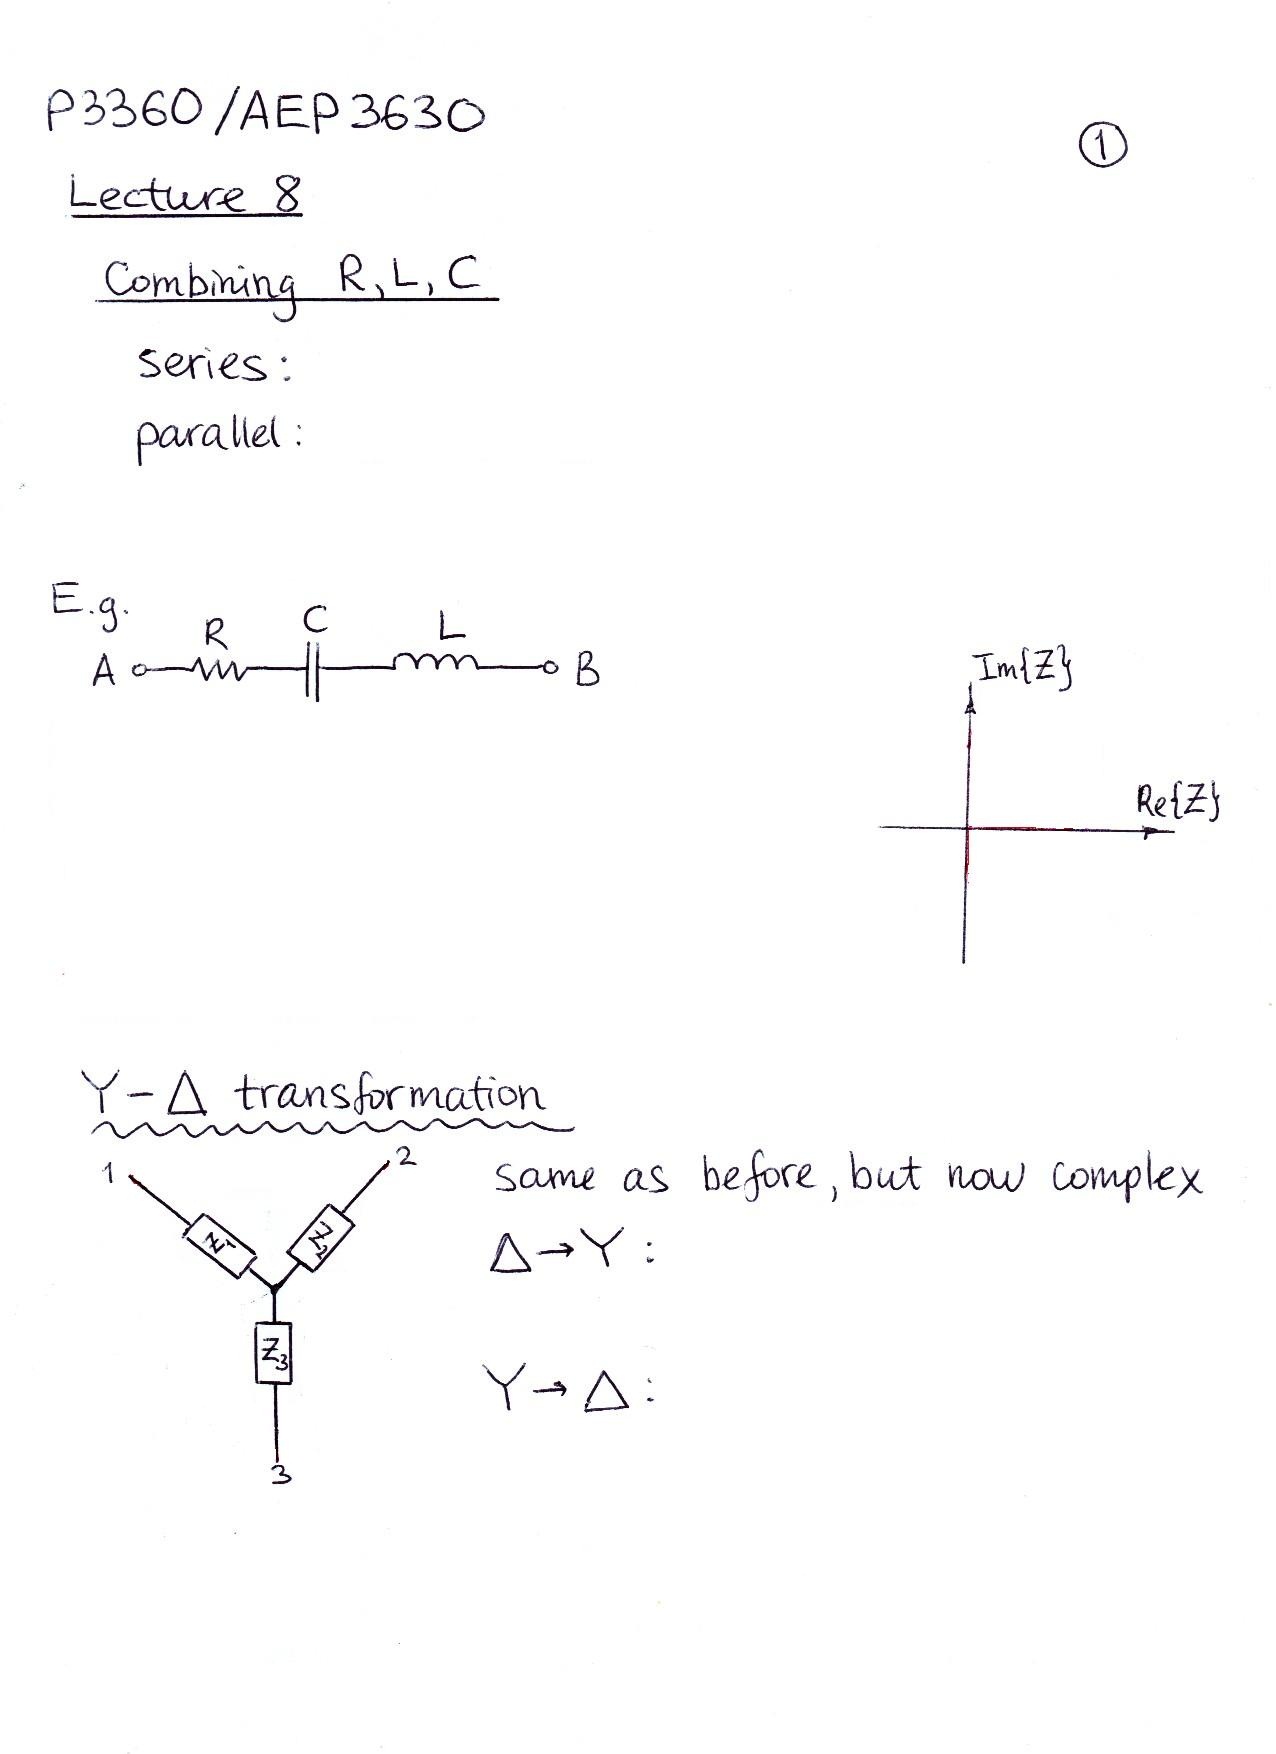 P3360/AEP3630
①
Lecture 8
Combining R, L, C
series:
parallel:
E.g.
R C L
A B
Im{Z}
Re{Z}
Y-Δ transformation
1 2
same as before, but now complex
Z1 Z2
Δ→Y:
Z3
Y→Δ:
3